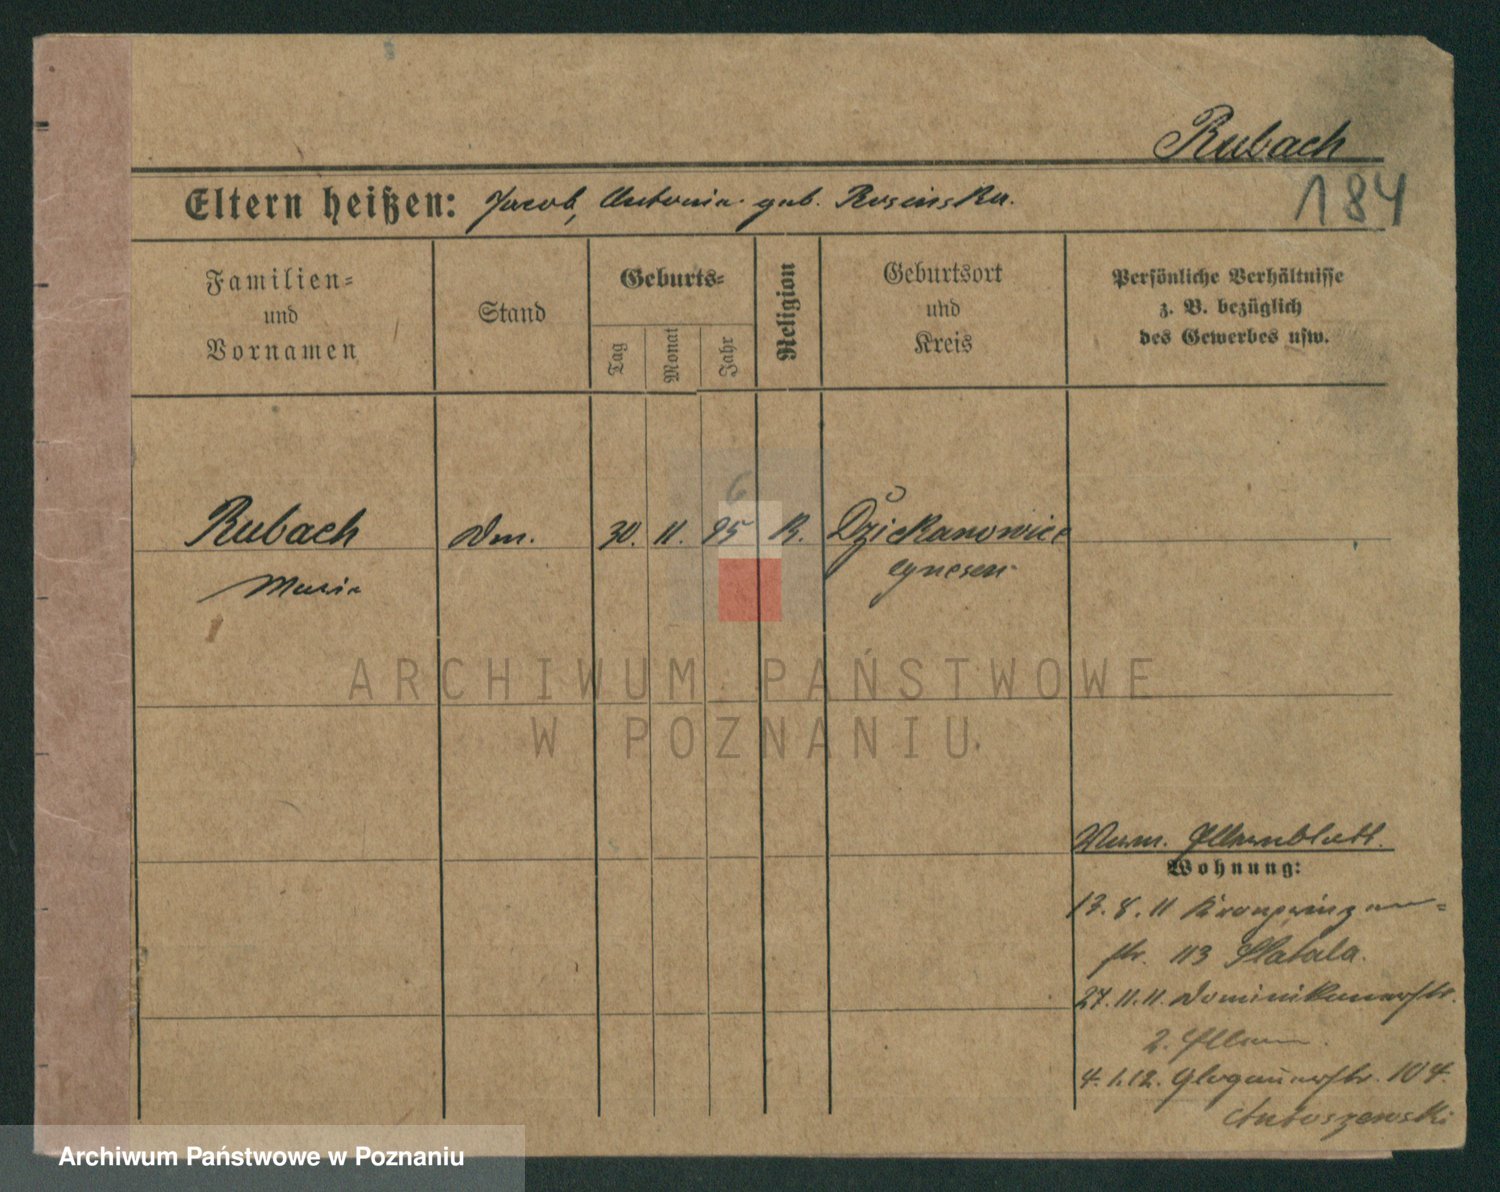 Rubach
Eltern heißen: Jacob, Antonia geb. Rosinska.
184
Familien=
und
Vornamen
Stand
Geburts=
Tag
Monat
Jahr
Religion
Geburtsort
und
Kreis
Persönliche Verhältnisse
z. B. bezüglich
des Gewerbes usw.
6
Rubach Dm. 30. 11. 95 K. Dziekanowice
Maria Gnesen
ARCHIWUM PAŃSTWOWE
W POZNANIU
Elternblatt.
Wohnung:
13. 8. 11 Kronprinzen=
str. 113 Slatala.
27. 11. 11. Dominikanerstr.
2. Eltern.
4. 1. 12. Glogauerstr. 104.
Antoszewski
Archiwum Państwowe w Poznaniu